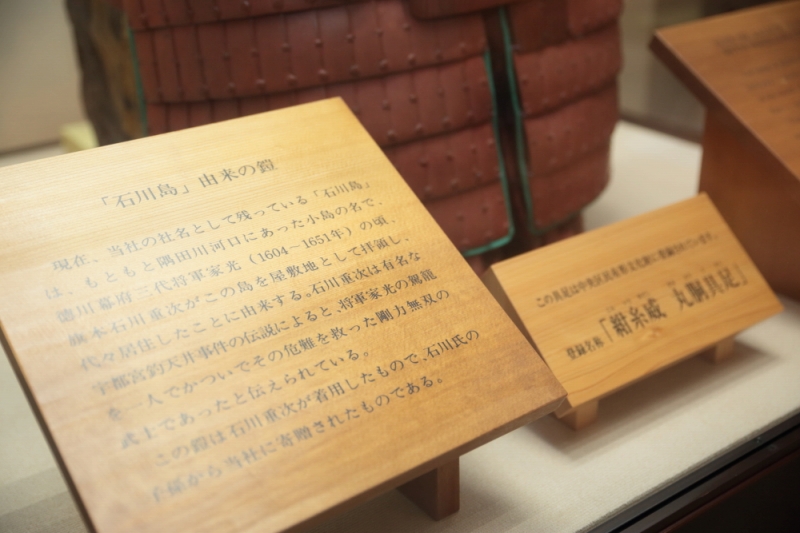 「石川島」由来の鎧
現在、当社の社名として残っている「石川島」
は、もともと隅田川河口にあった小島の名で、
徳川幕府三代将軍家光（1604－1651年）の頃、
旗本石川重次がこの島を屋敷地として拝領し、
代々居住したことに由来する。石川重次は有名な
宇都宮釣天井事件の伝説によると、将軍家光の駕籠
を一人でかついでその危難を救った剛力無双の
武士であったと伝えられている。
この鎧は石川重次が着用したもので、石川氏の
子孫から当社に寄贈されたものである。
この具足は中央区民有形文化財に登録されています。
登録名称「紺糸威 丸胴具足」